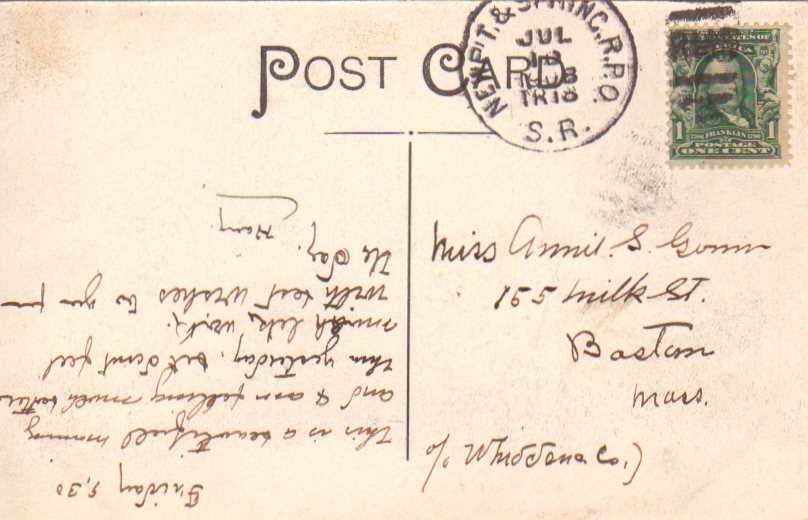 POST CARD
NEWP'T. & SPRING. R.P.O.
JUL
1908
TR18
S.R.
UNITED STATES OF
AMERICA
1 FRANKLIN 1
POSTAGE
ONE CENT
Miss Annie. S. 
155 Milk St.
Boston
Mass.
c/o Whidden & Co.)
Friday 8,30
This is a beautifull morning
and I am feeling much better
than yesterday, but dont feel
much like work.
With best wishes to you for
the Day.
Harry